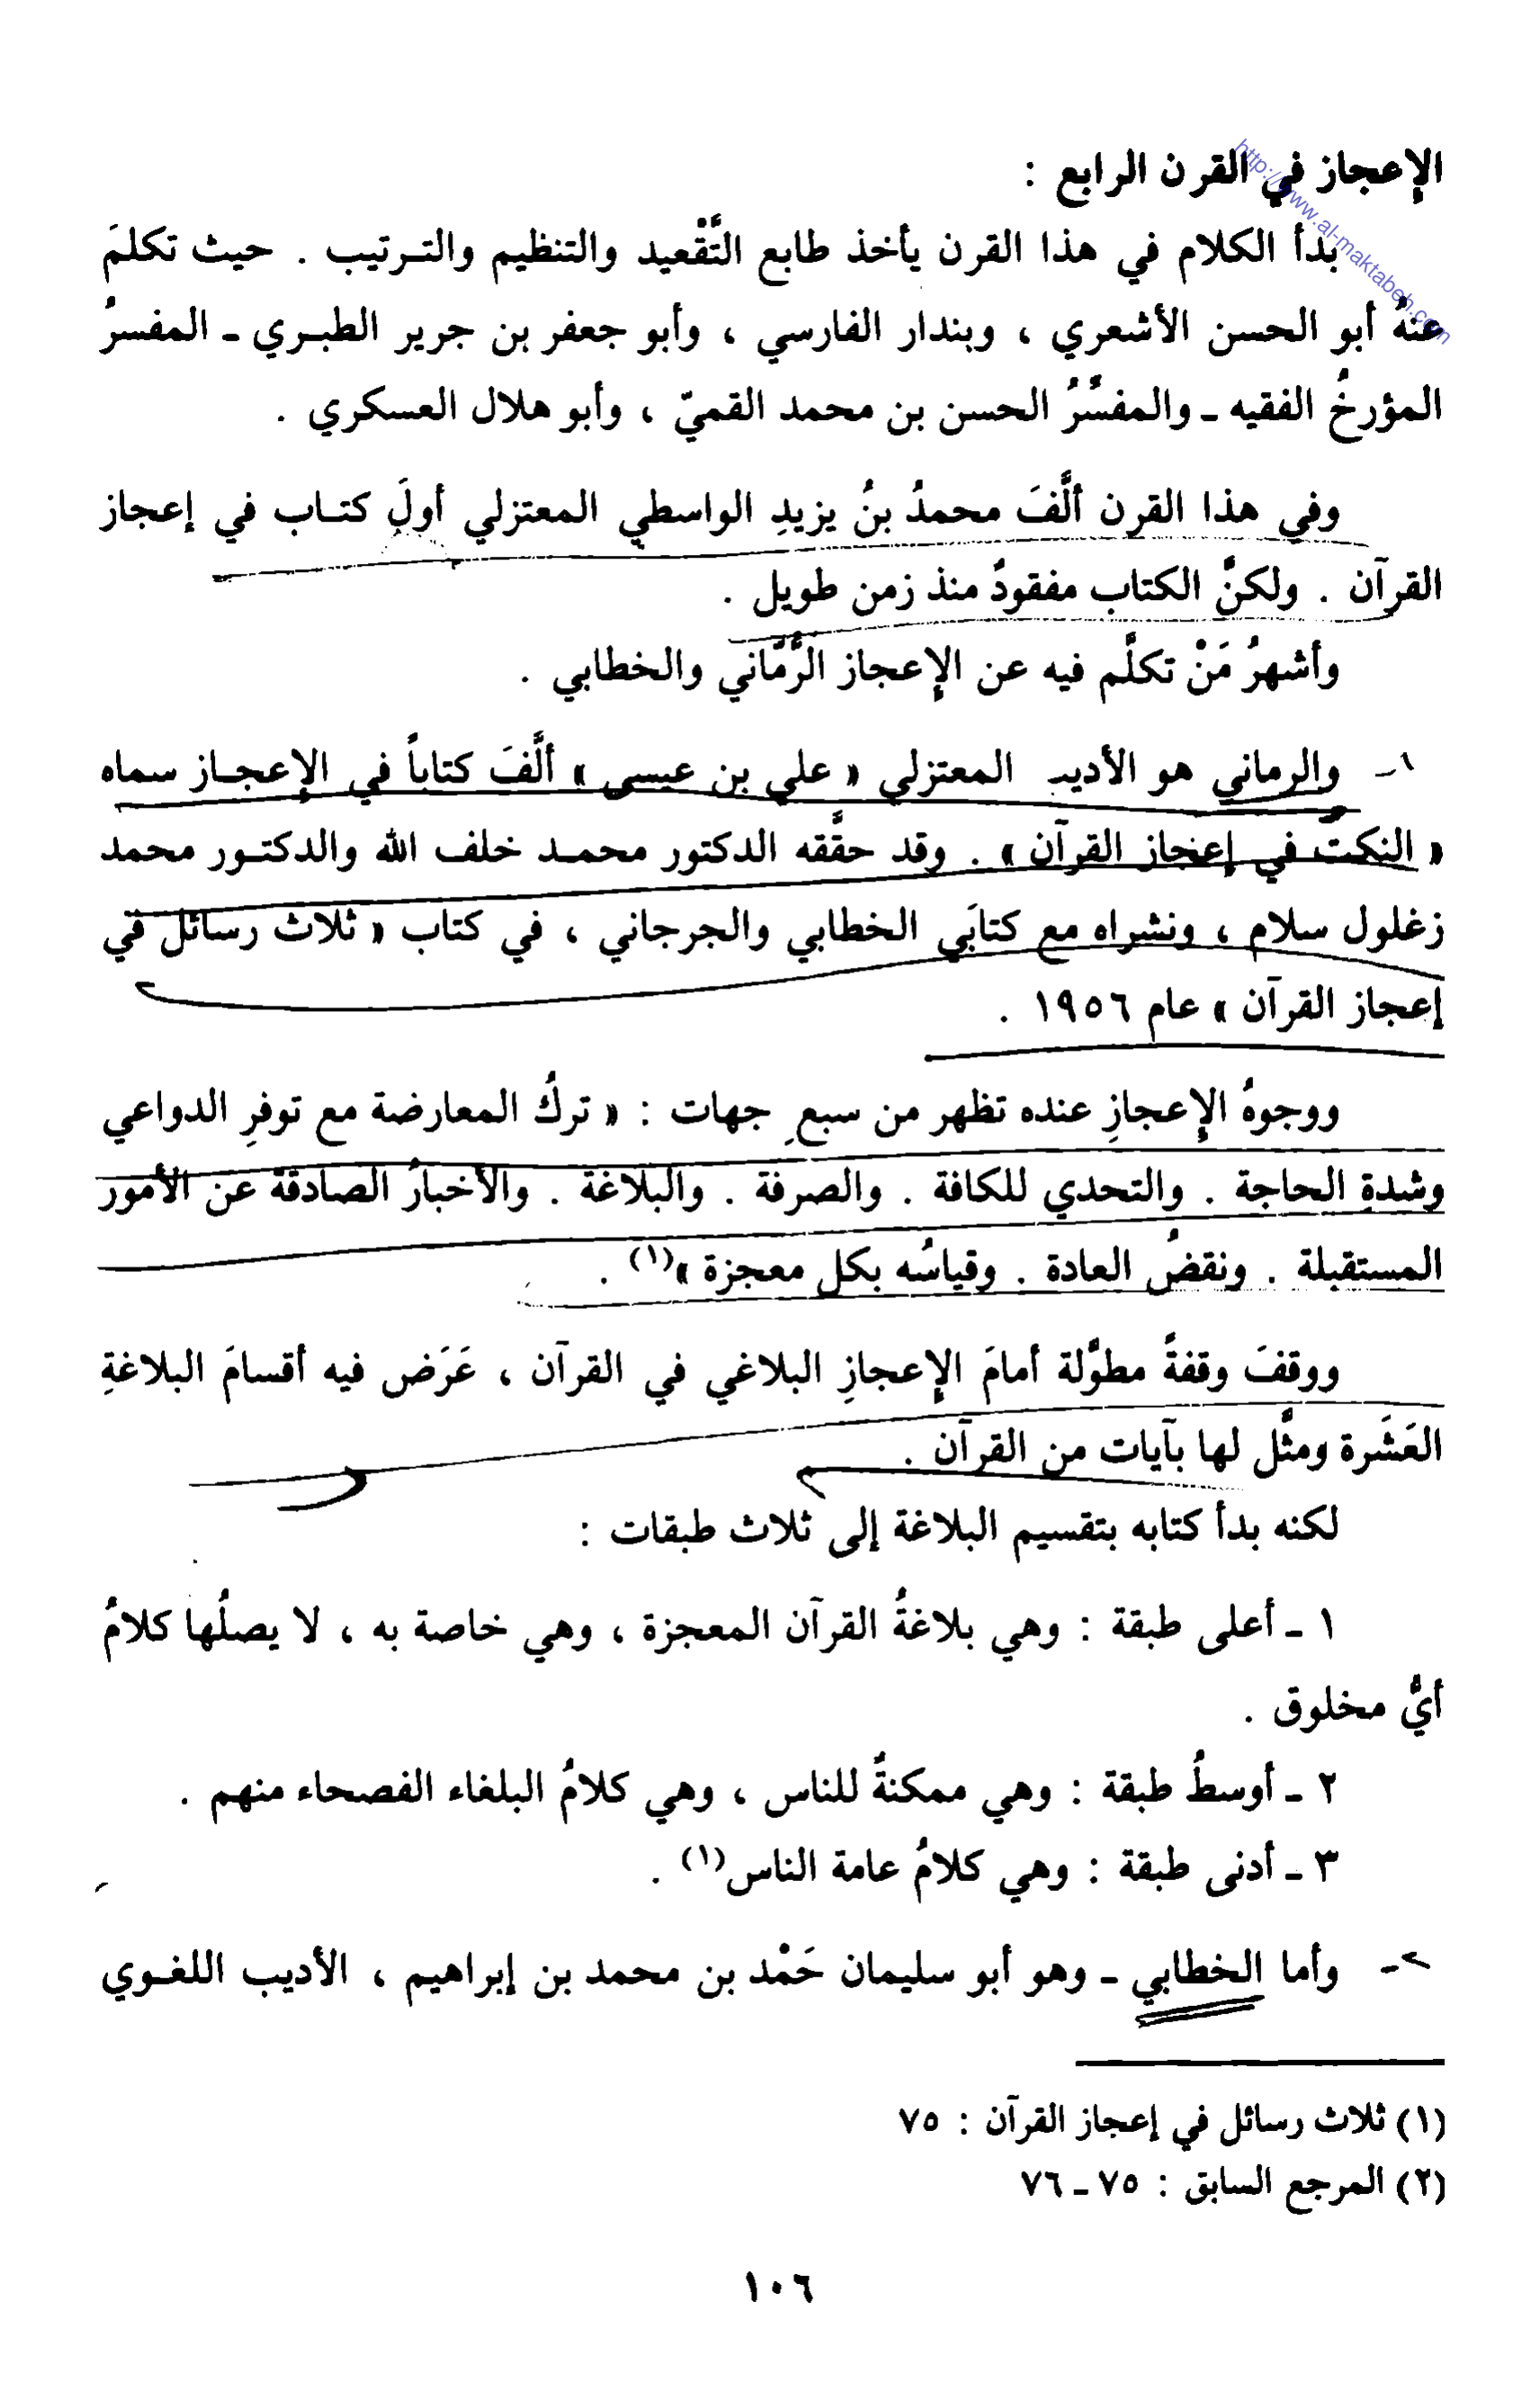 الإعجاز في القرن الرابع :
http://www.al-maktabeh.com
بدأ الكلام في هذا القرن يأخذ طابع التَّقْعيد والتنظيم والترتيب . حيث تكلمَ
عنهُ أبو الحسن الأشعري ، وبندار الفارسي ، وأبو جعفر بن جرير الطبري ـ المفسرُ
المؤرخُ الفقيه ـ والمفسِّرُ الحسن بن محمد القميّ ، وأبو هلال العسكري .
وفي هذا القرن ألَّفَ محمدُ بنُ يزيدِ الواسطي المعتزلي أولَ كتاب في إعجاز
القرآن . ولكنَّ الكتاب مفقودٌ منذ زمن طويل .
وأشهرُ مَنْ تكلَّم فيه عن الإعجاز الرُّمَّاني والخطابي .
١ـ والرماني هو الأديب المعتزلي « علي بن عيسى » ألَّفَ كتاباً في الإعجاز سماه
« النكتُ في إعجاز القرآن » . وقد حقَّقه الدكتور محمد خلف الله والدكتور محمد
زغلول سلام ، ونشراه مع كتابَي الخطابي والجرجاني ، في كتاب « ثلاث رسائل في
إعجاز القرآن » عام ١٩٥٦ .
ووجوهُ الإعجازِ عنده تظهر من سبعِ جهات : « تركُ المعارضة مع توفرِ الدواعي
وشدةِ الحاجة . والتحدي للكافة . والصرفة . والبلاغة . والأخبارُ الصادقة عن الأمور
المستقبلة . ونقضُ العادة . وقياسُه بكل معجزة »(١) .
ووقفَ وقفةً مطوَّلة أمامَ الإعجازِ البلاغي في القرآن ، عَرَض فيه أقسامَ البلاغةِ
العَشَرة ومثَّل لها بآيات من القرآن .
لكنه بدأ كتابه بتقسيم البلاغة إلى ثلاث طبقات :
١ ـ أعلى طبقة : وهي بلاغةُ القرآن المعجزة ، وهي خاصة به ، لا يصلُها كلامُ
أيُّ مخلوق .
٢ ـ أوسطُ طبقة : وهي ممكنةٌ للناس ، وهي كلامُ البلغاء الفصحاء منهم .
٣ ـ أدنى طبقة : وهي كلامُ عامة الناس(١) .
٢ـ وأما الخطابي ـ وهو أبو سليمان حَمْد بن محمد بن إبراهيم ، الأديب اللغوي
(١) ثلاث رسائل في إعجاز القرآن : ٧٥
(٢) المرجع السابق : ٧٥ ـ ٧٦
١٠٦